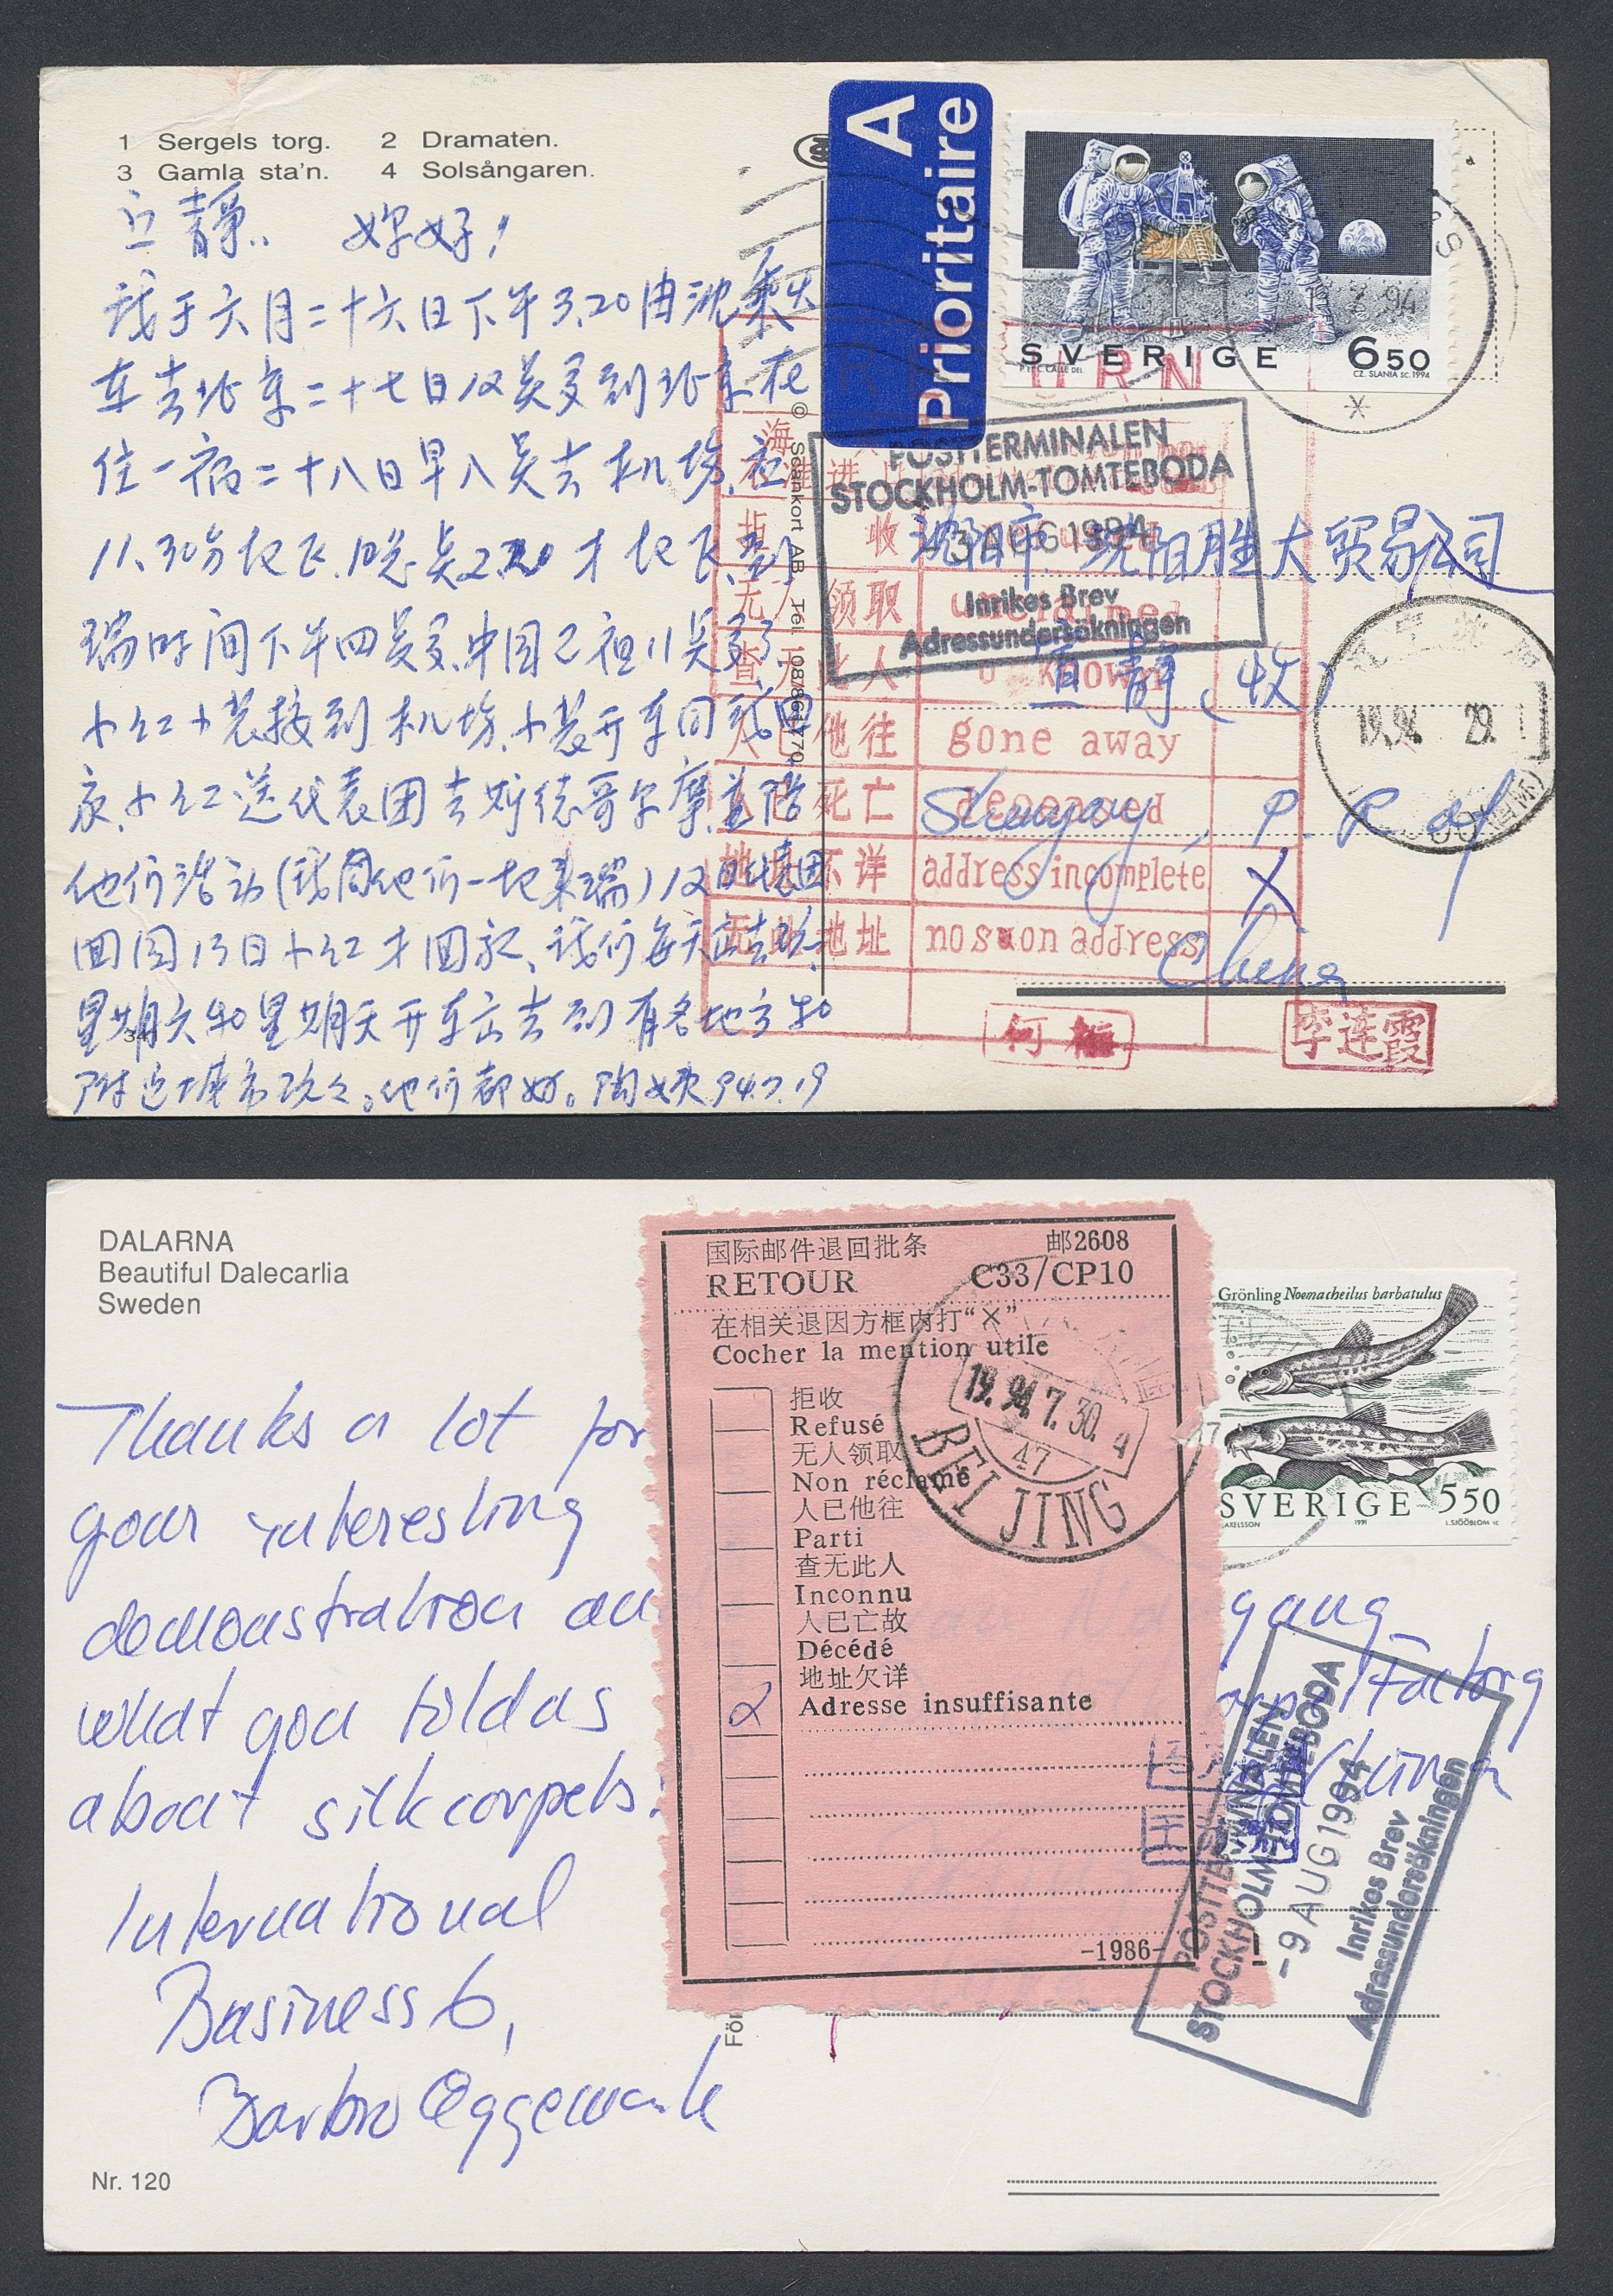 1 Sergels torg. 2 Dramaten.
3 Gamla sta'n. 4 Solsångaren.
A
Prioritaire
SVERIGE 650
P. ET C. CALLE DEL. CZ. SLANIA SC. 1994
立静: 妳好!
我于六月二十六日下午3.20由沈乘火
车去北京二十七日 到北京在
住一宿二十八日早八点去机场,
11.30分起飞. 才起飞,到
瑞时间下午四点多,中国已 11点多了,
小红小裴接到机场,小裴开车同我回
家,小红送代表团去斯德哥尔摩,并陪
他们活动(我同他们一起来瑞)代表团
回国13日小红才回家,我们每天出去
星期六和星期天开车出去到有名地方和
附近城市玩。他们都好。 94.7.19
© Scankort AB Tel.
POSTTERMINALEN
STOCKHOLM-TOMTEBODA
AUG 1994
Inrikes Brev
Adressundersökningen
沈阳市. 沈阳胜大贸易公司
立静 (收)
Shenyang, P. R of
China
URN
海
收
无人领取 unclaimed
查无此人 known
他往 gone away
死亡 deceased
地址不详 address incomplete X
地址 no such address
何梅
李连霞
19.94. 29.
DALARNA
Beautiful Dalecarlia
Sweden
Thanks a lot for
your interesting
demonstration an
what you told us
about silkcarpets.
International
Business 6,
Barbro Oggemark
Nr. 120
För
国际邮件退回批条 邮2608
RETOUR C33/CP10
在相关退因方框内打“×”
Cocher la mention utile
拒收
Refusé
无人领取
Non réclamé
人已他往
Parti
查无此人
Inconnu
人已亡故
Décédé
地址欠详
Adresse insuffisante
-1986-
19.94.7.30. 4
47
BEI JING
Grönling Noemacheilus barbatulus
SVERIGE 550
AXELSSON 1991 L.SJÖÖBLOM SC
gang
arpet Factory
China
POSTTERMINALEN
STOCKHOLM-TOMTEBODA
-9 AUG 1994
Inrikes Brev
Adressundersökningen